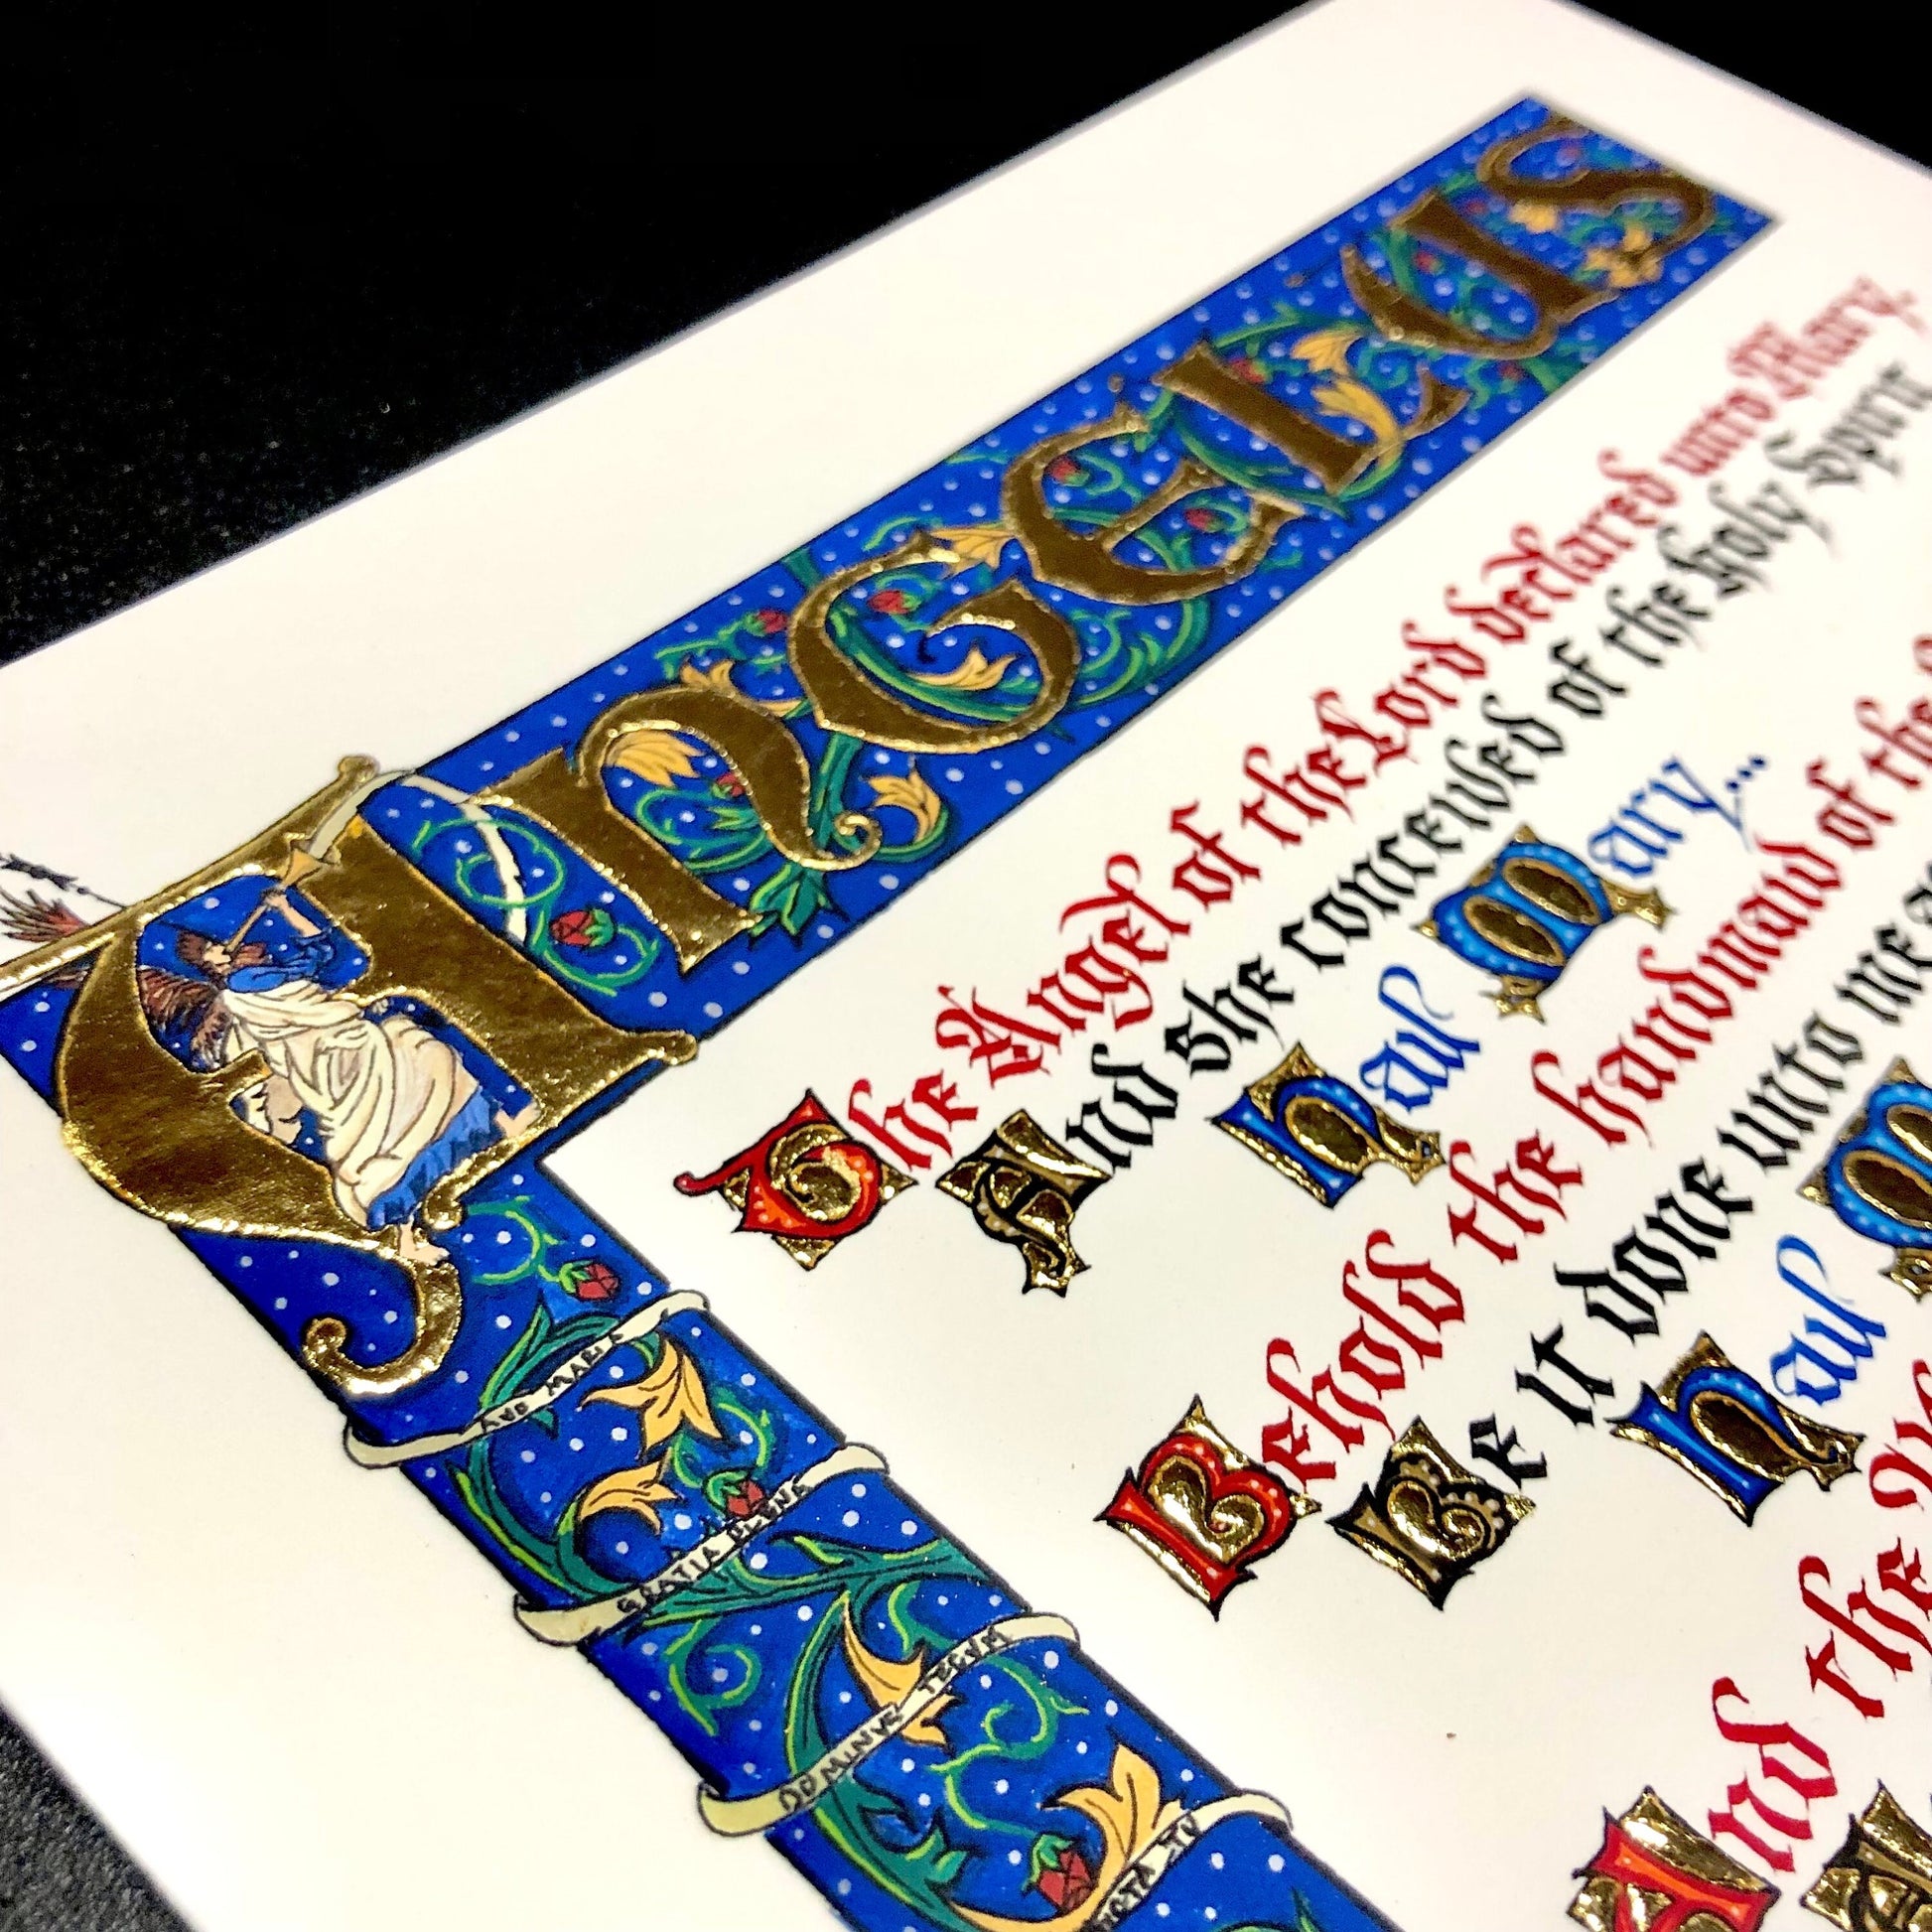 ANGELUS
The Angel of the Lord declared unto Mary.
And she conceived of the holy Spirit
hail Mary...
Behold the handmaid of the
Be it done unto me
hail M
And the
And
AVE MARI
GRATIA PLENA
DOMINUS TECUM
TU